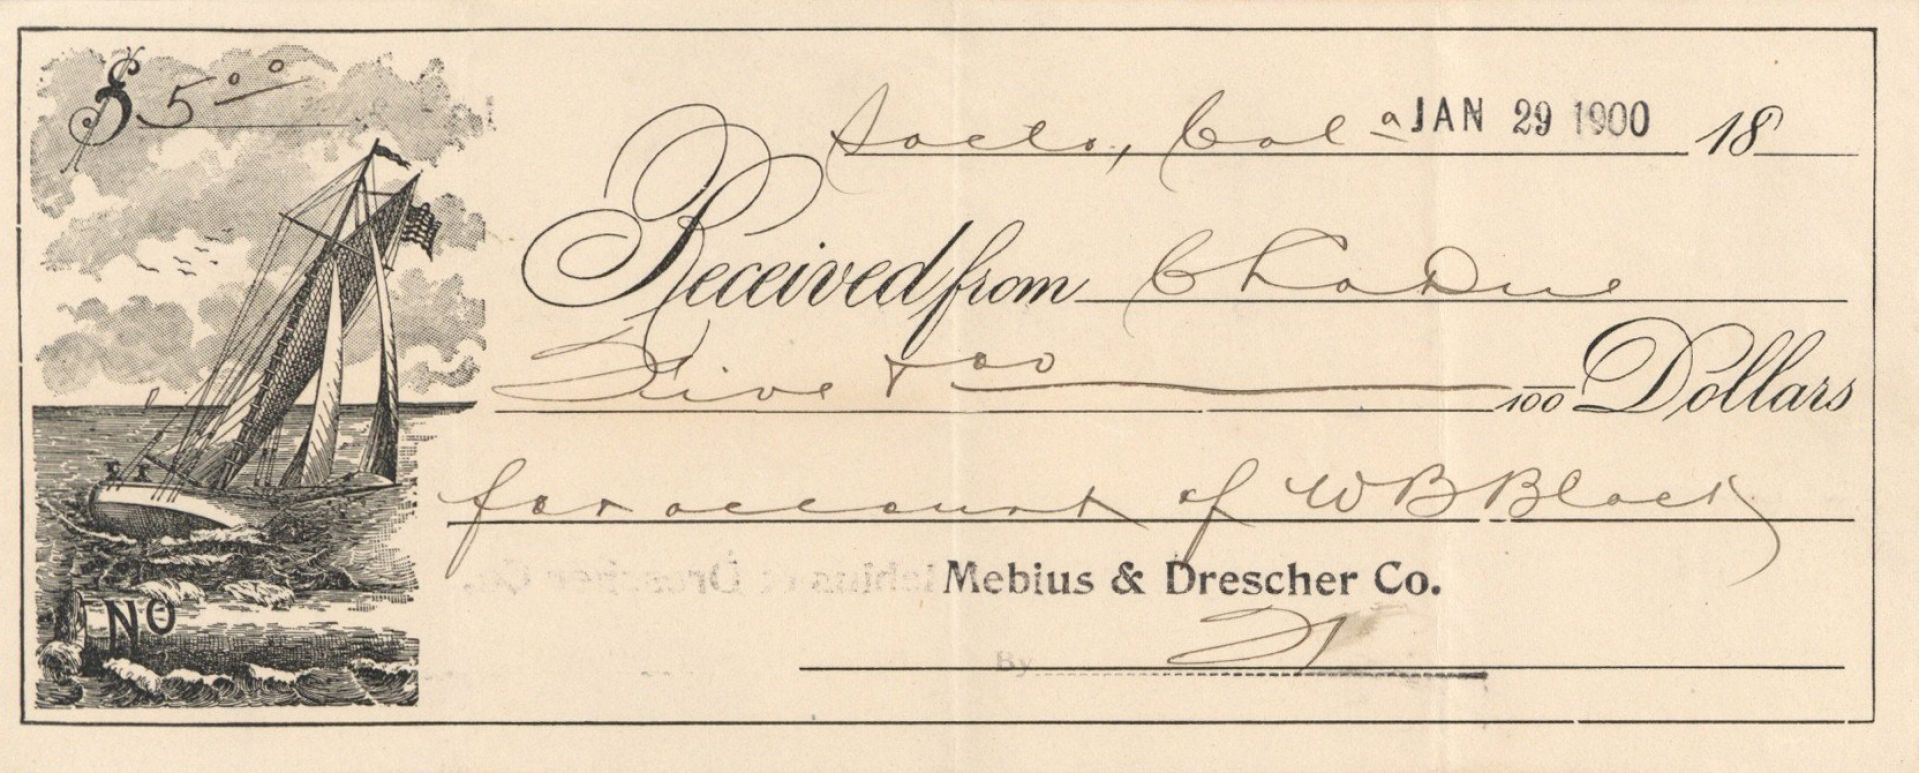 $ 5 00
Sacto, Cala JAN 29 1900 18
Received from Chas Due
Five & 00/100 Dollars
for account of W B Black
Mebius & Drescher Co.
By
NO